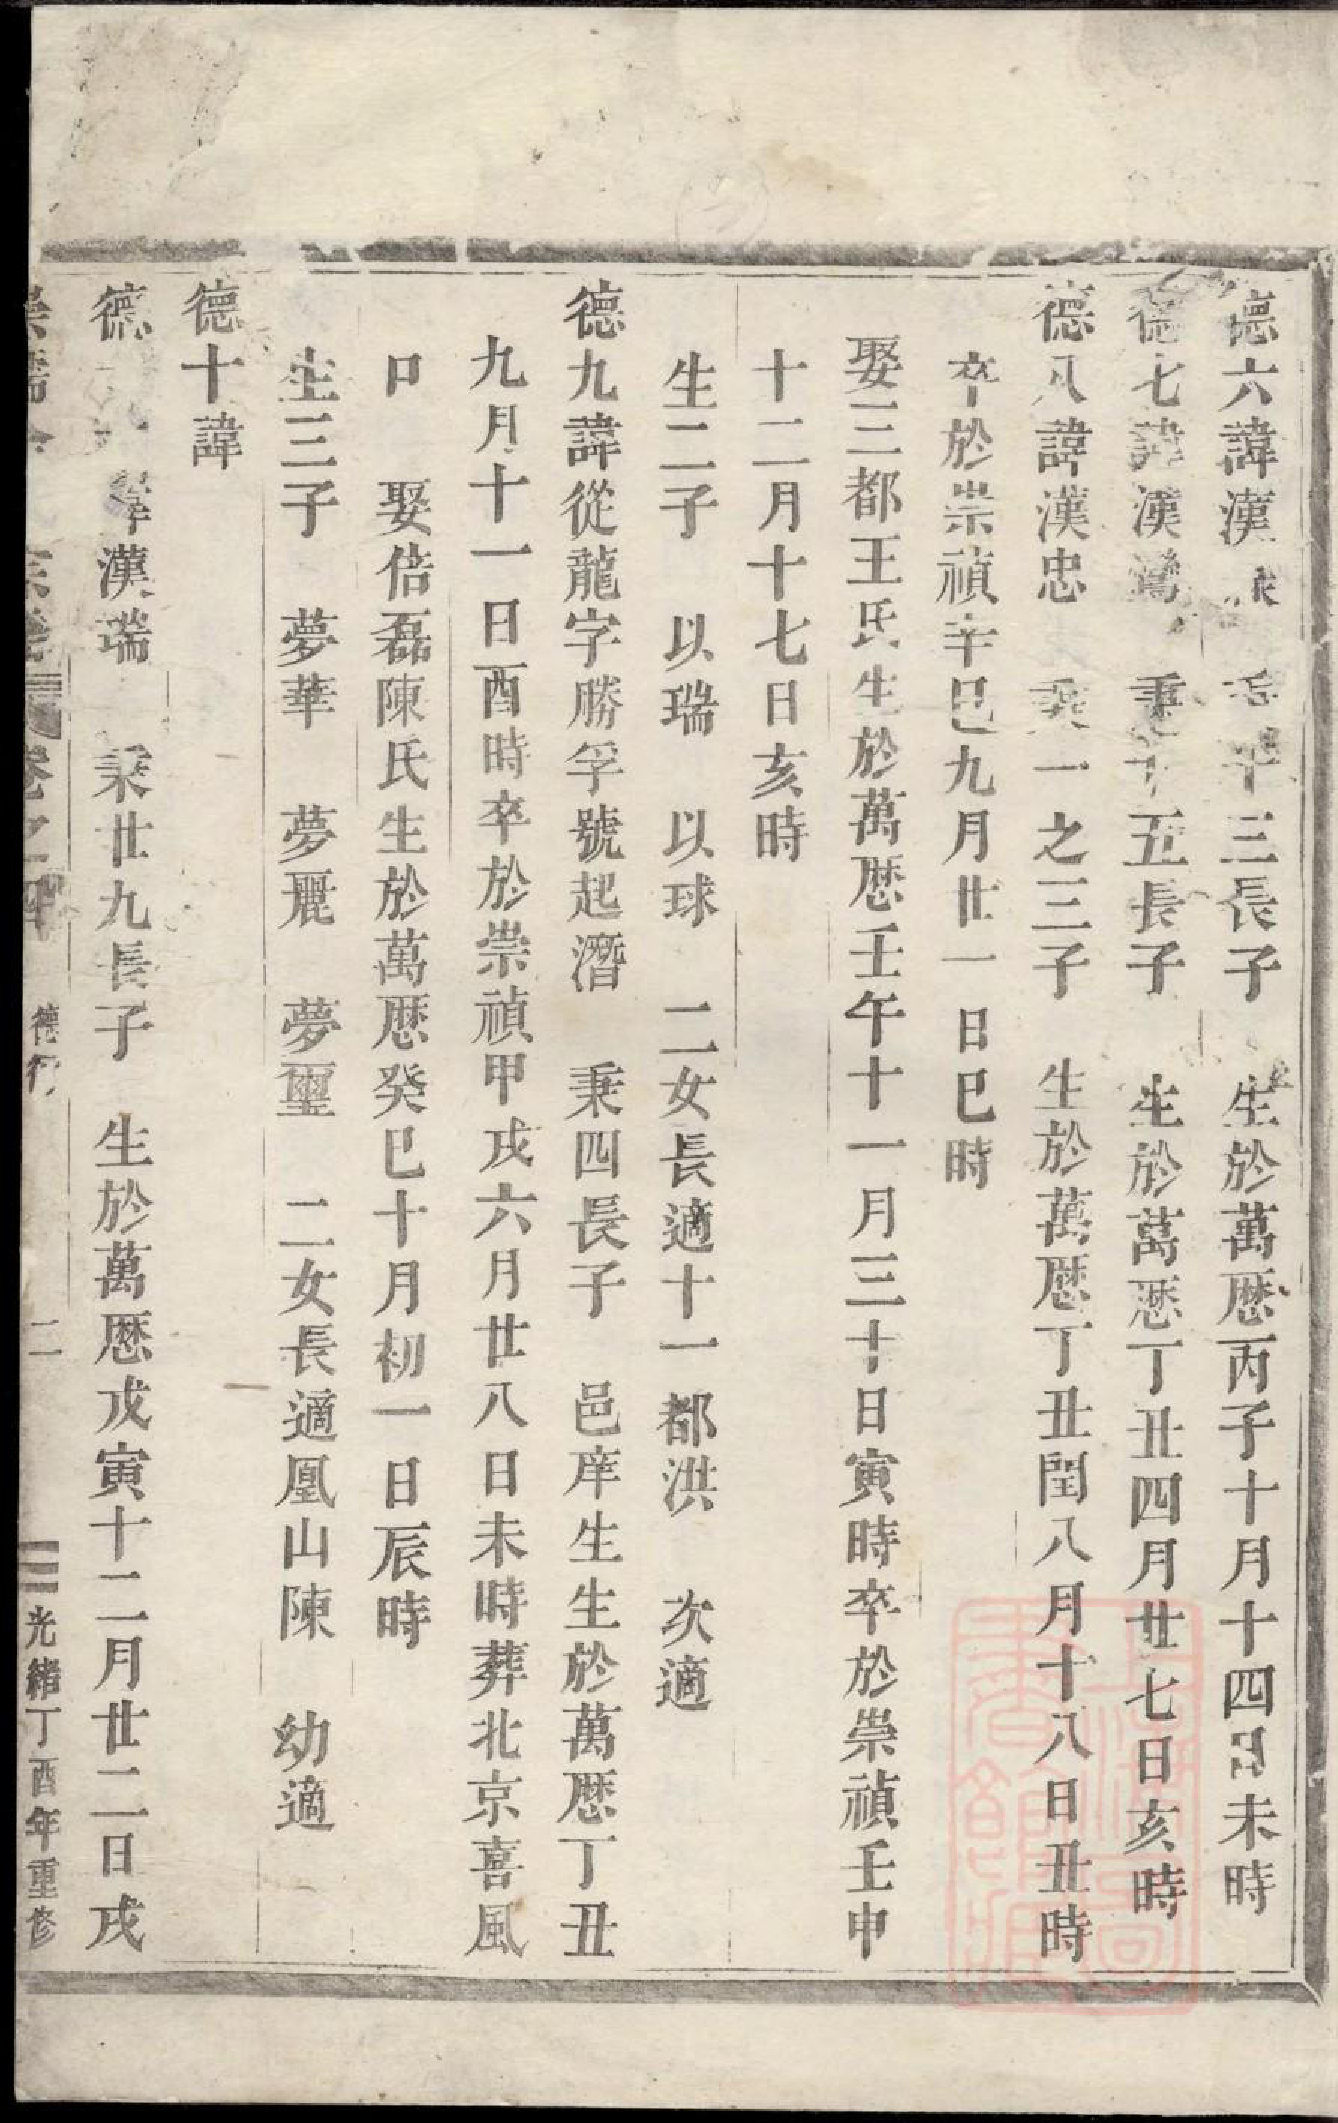 德六諱漢 三長子 生於萬厯丙子十月十四日未時
德七諱漢鸞 秉十五長子 生於萬厯丁丑四月廿七日亥時
德八諱漢忠 秉一之三子 生於萬厯丁丑閏八月十八日丑時
卒於崇禎辛巳九月廿一日巳時
娶三都王氏生於萬厯壬午十一月三十日寅時卒於崇禎壬申
十二月十七日亥時
生二子 以瑞 以球 二女長適十一都洪 次適
德九諱從龍字勝孚號起潛 秉四長子 邑庠生生於萬厯丁丑
九月十一日酉時卒於崇禎甲戌六月廿八日未時葬北京喜風
口 娶倍磊陳氏生於萬厯癸巳十月初一日辰時
生三子 夢華 夢麗 夢璽 二女長適凰山陳 幼適
德十諱
德十 諱漢瑞 秉廿九長子 生於萬厯戊寅十二月廿二日戌
宗譜 卷之四 德行 二 光緒丁酉年重修